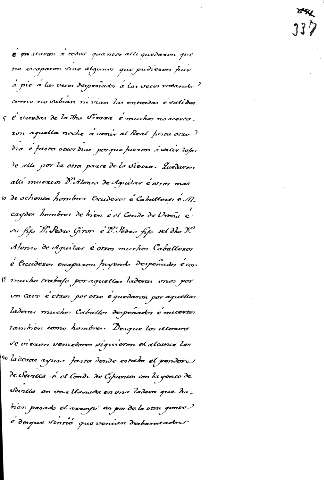 337
e mataron á todos quantos alli quedaron que
no escaparon sino algunos que pudieron huir
á pié á las veces despeñados á las veces rodando
como no sabian ni vian las entradas e salidas
é veredas de la dha Sierra é muchos no acerta-
ron aquella noche á venir al Real fasta otro
dia é fasta otros dias porque fueron á salir
de alli por la otra parte de la sierra. Quedaron
alli muertos Dn. Alonso de Aguilar é otros mas
de ochenta hombres Escuderos é Caballeros e
hombres de bien é el Conde de Ureña é
su fijo Dn. Pedro Giron é Dn. Pedro fijo del dho Dn.
Alonso de Aguilar é otros muchos Caballeros
é Escuderos escaparon fuyendo despeñados é con
mucho trabajo por aquellas laderas unos por
un cavo é otros por otro é quedaron por aquellas
laderas muchos Caballos despeñados e muertos
tambien como hombres. Desque los moros
se vieron vencedores siguieron el alcance las
laderas ayuso fasta donde estaba el pendon
de Sevilla é el Conde de Cifuentes con la gente de
Sevilla en una llanada en una ladera que ha-
bian pasado el arroyo un poco de la otra gente
é desque sintió que venian desbaratados